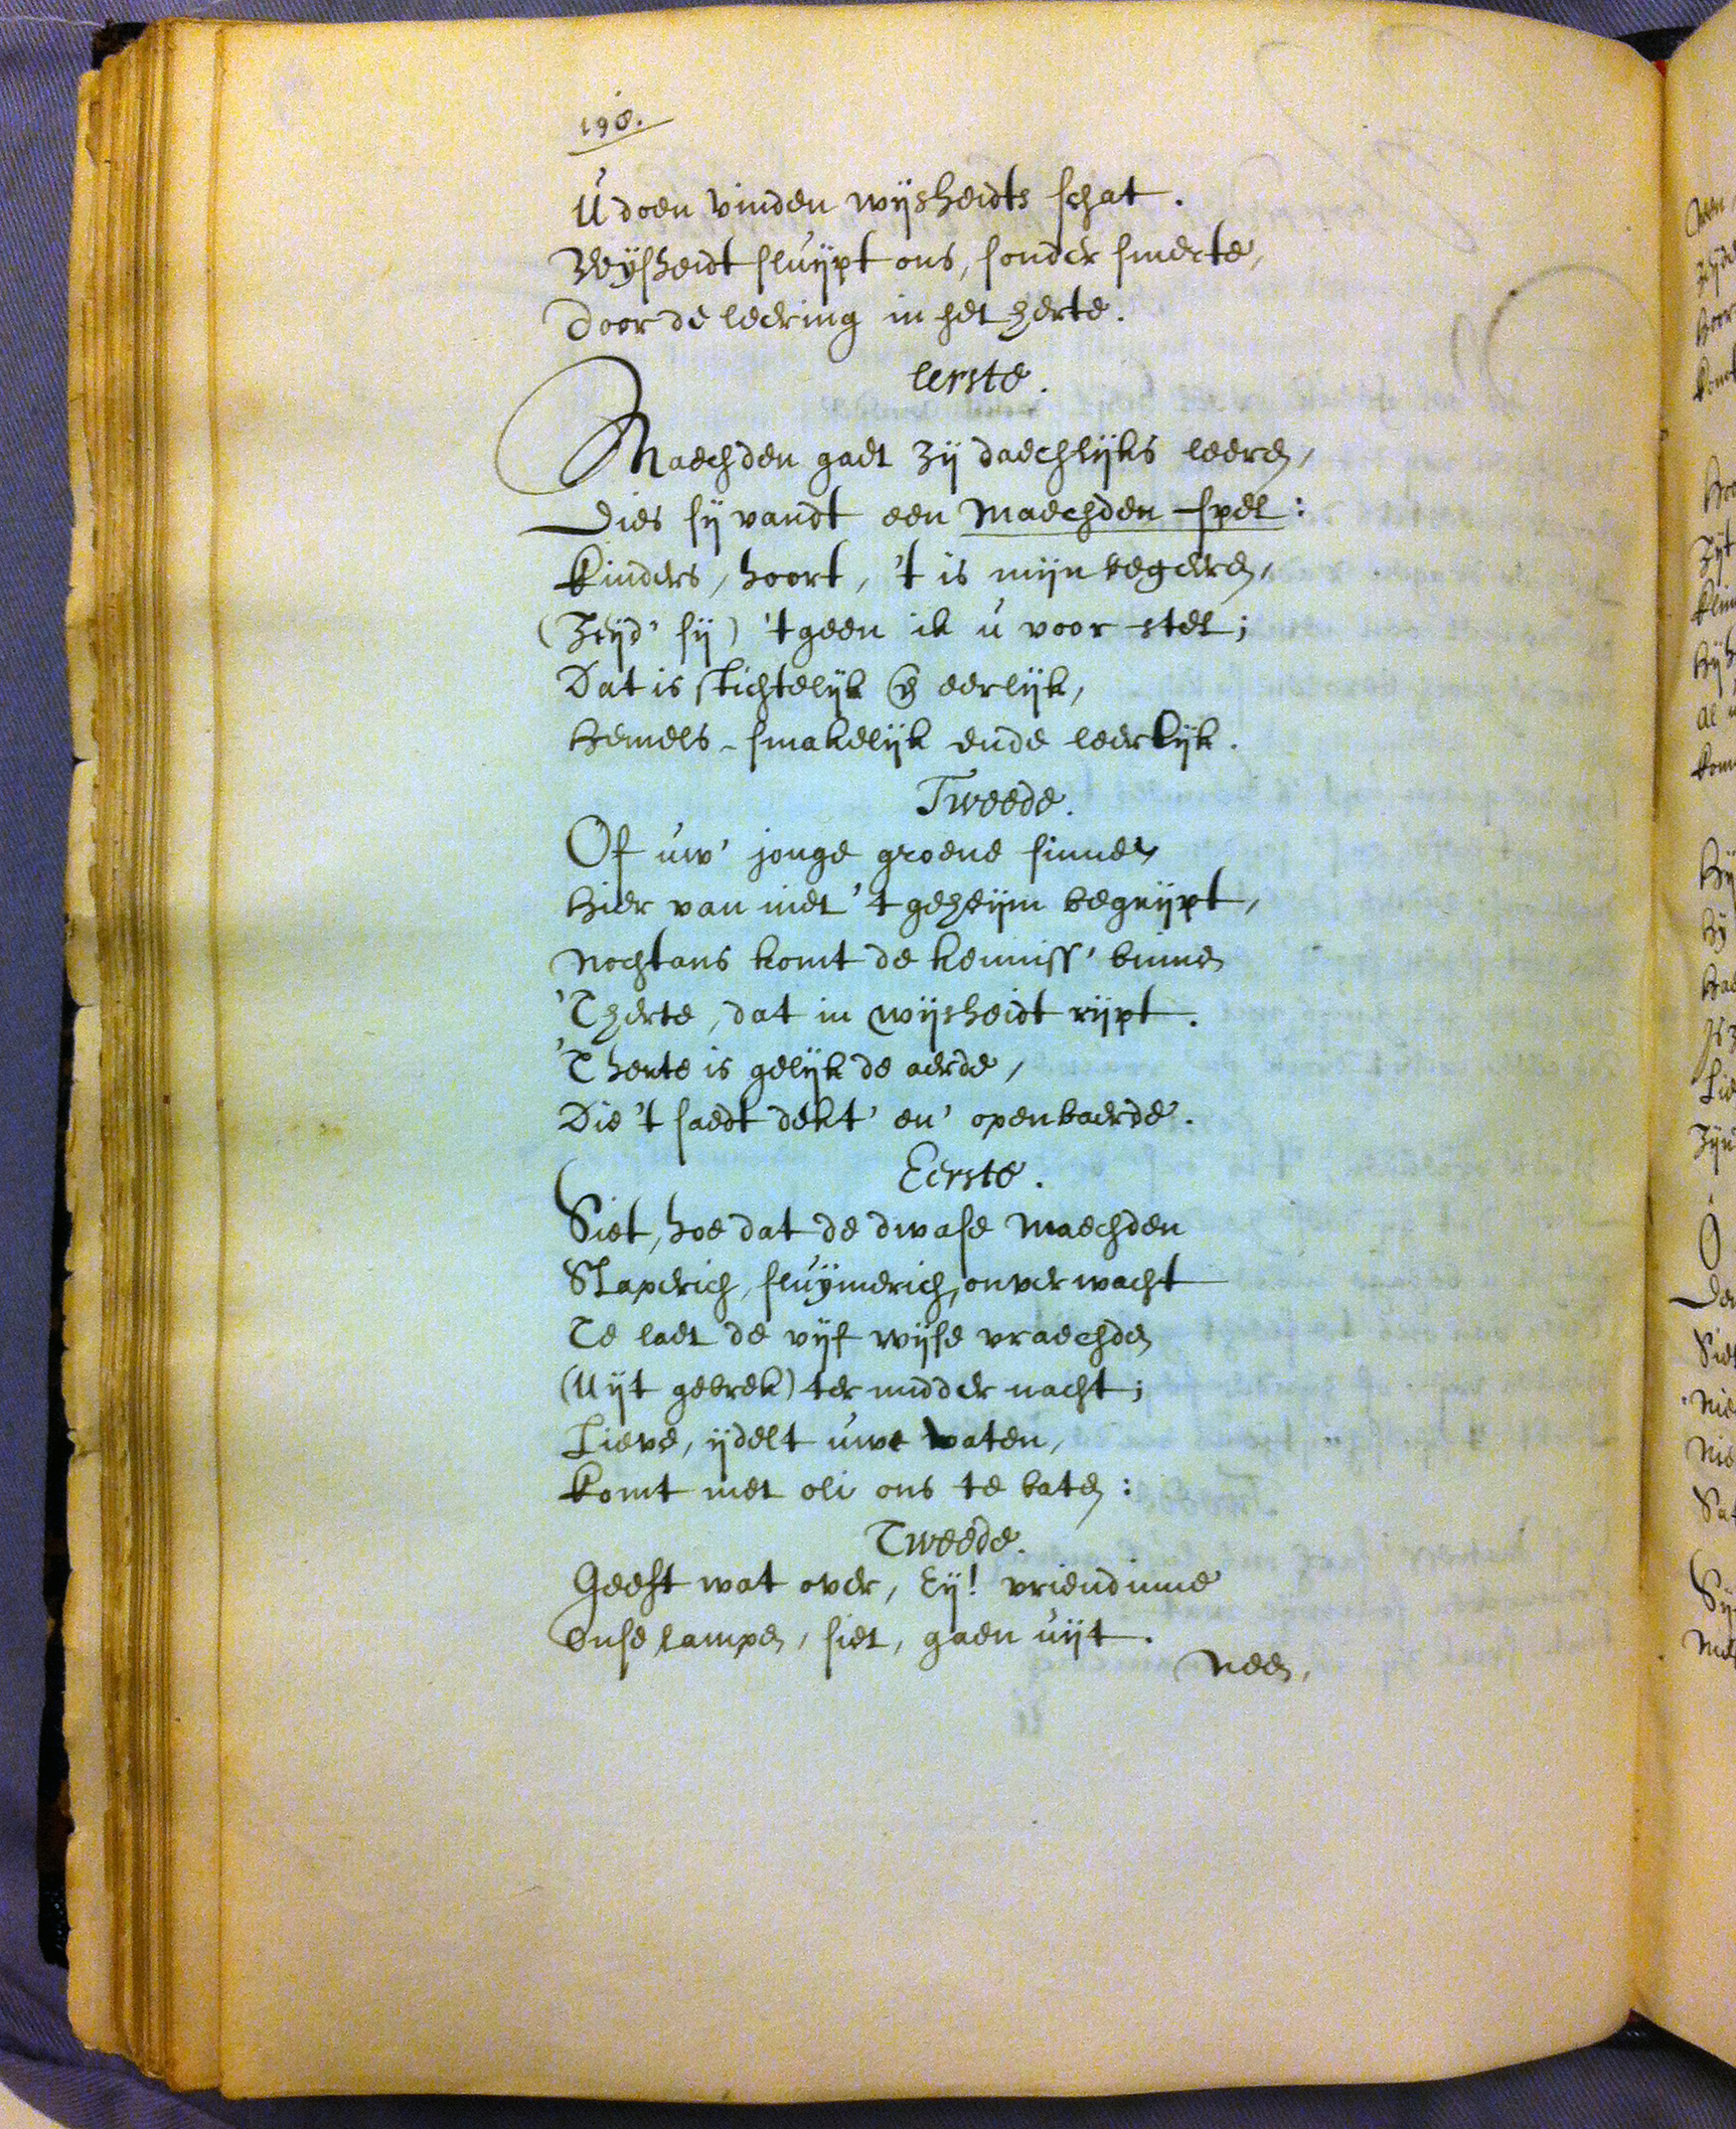 198.
U doen vinden wijsheidts schat.
Wijsheidt sluijpt ons, sonder smerte,
Door de leering in het herte.
Eerste.
Maechden gaet zij daechlijks leeren,
Dies sij vandt een Maechden-spel:
Kinders, hoort, 't is mijn begeren,
(Zeijd' sij) 't geen ik u voor stel;
Dat is stichtelijk en eerlijk,
Hemels-smakelijk ende leerlijk.
Tweede.
Of uw' jonge groene sinnen
Hier van niet 't geheijm begrijpt,
Nochtans komt de kenniss' binnen
'T herte, dat in wijsheidt rijpt.
'T herte is gelijk de aerde,
Die 't saedt dekt' en' openbaerde.
Eerste.
Siet, hoe dat de dwase Maechden
Slaperich, sluijmerich, onverwacht
Te laet de vijf wijse vraechden
(Uijt gebrek) ter midder nacht;
Lieve, ijdelt uwe vaten,
Komt met oli ons te baten:
Tweede.
Geeft wat over, Eij! vriendinne
Onse lampen, siet, gaen uijt.
Neen,